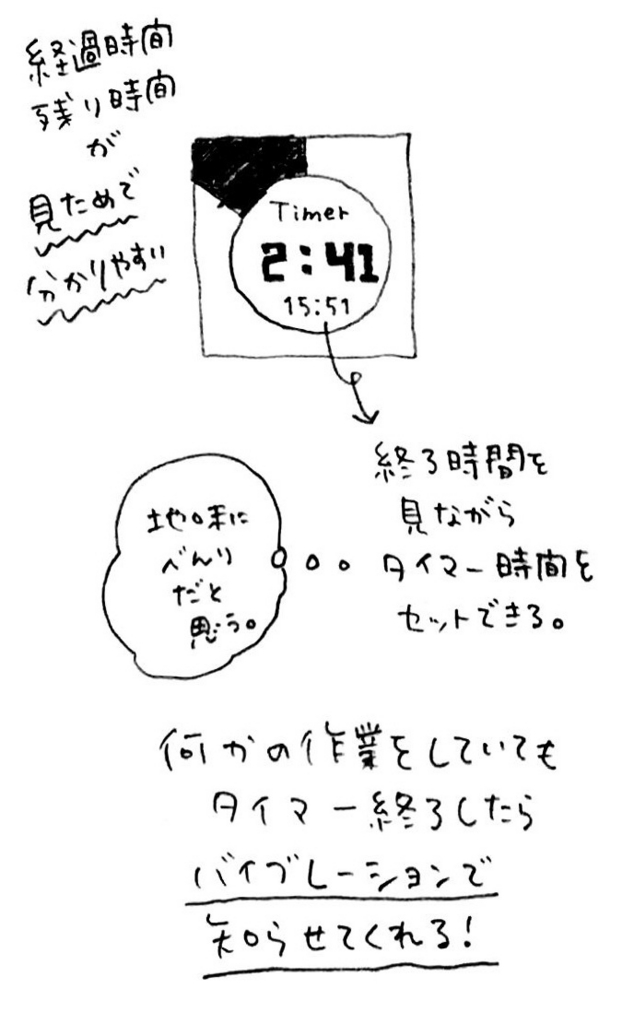 経過時間
残り時間
が
見ためで
分かりやすい
Timer
2:41
15:51
終了時間を
見ながら
タイマー時間を
セットできる。
地味に
べんり
だと
思う。
何かの作業をしていても
タイマー終了したら
バイブレーションで
知らせてくれる!